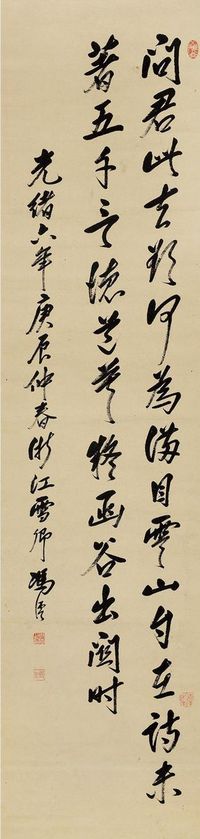 問君此去欲何為滿目雲山自在詩未
著五千言德道疑函谷出關時
光緒六年庚辰仲春浙江雪卿馮